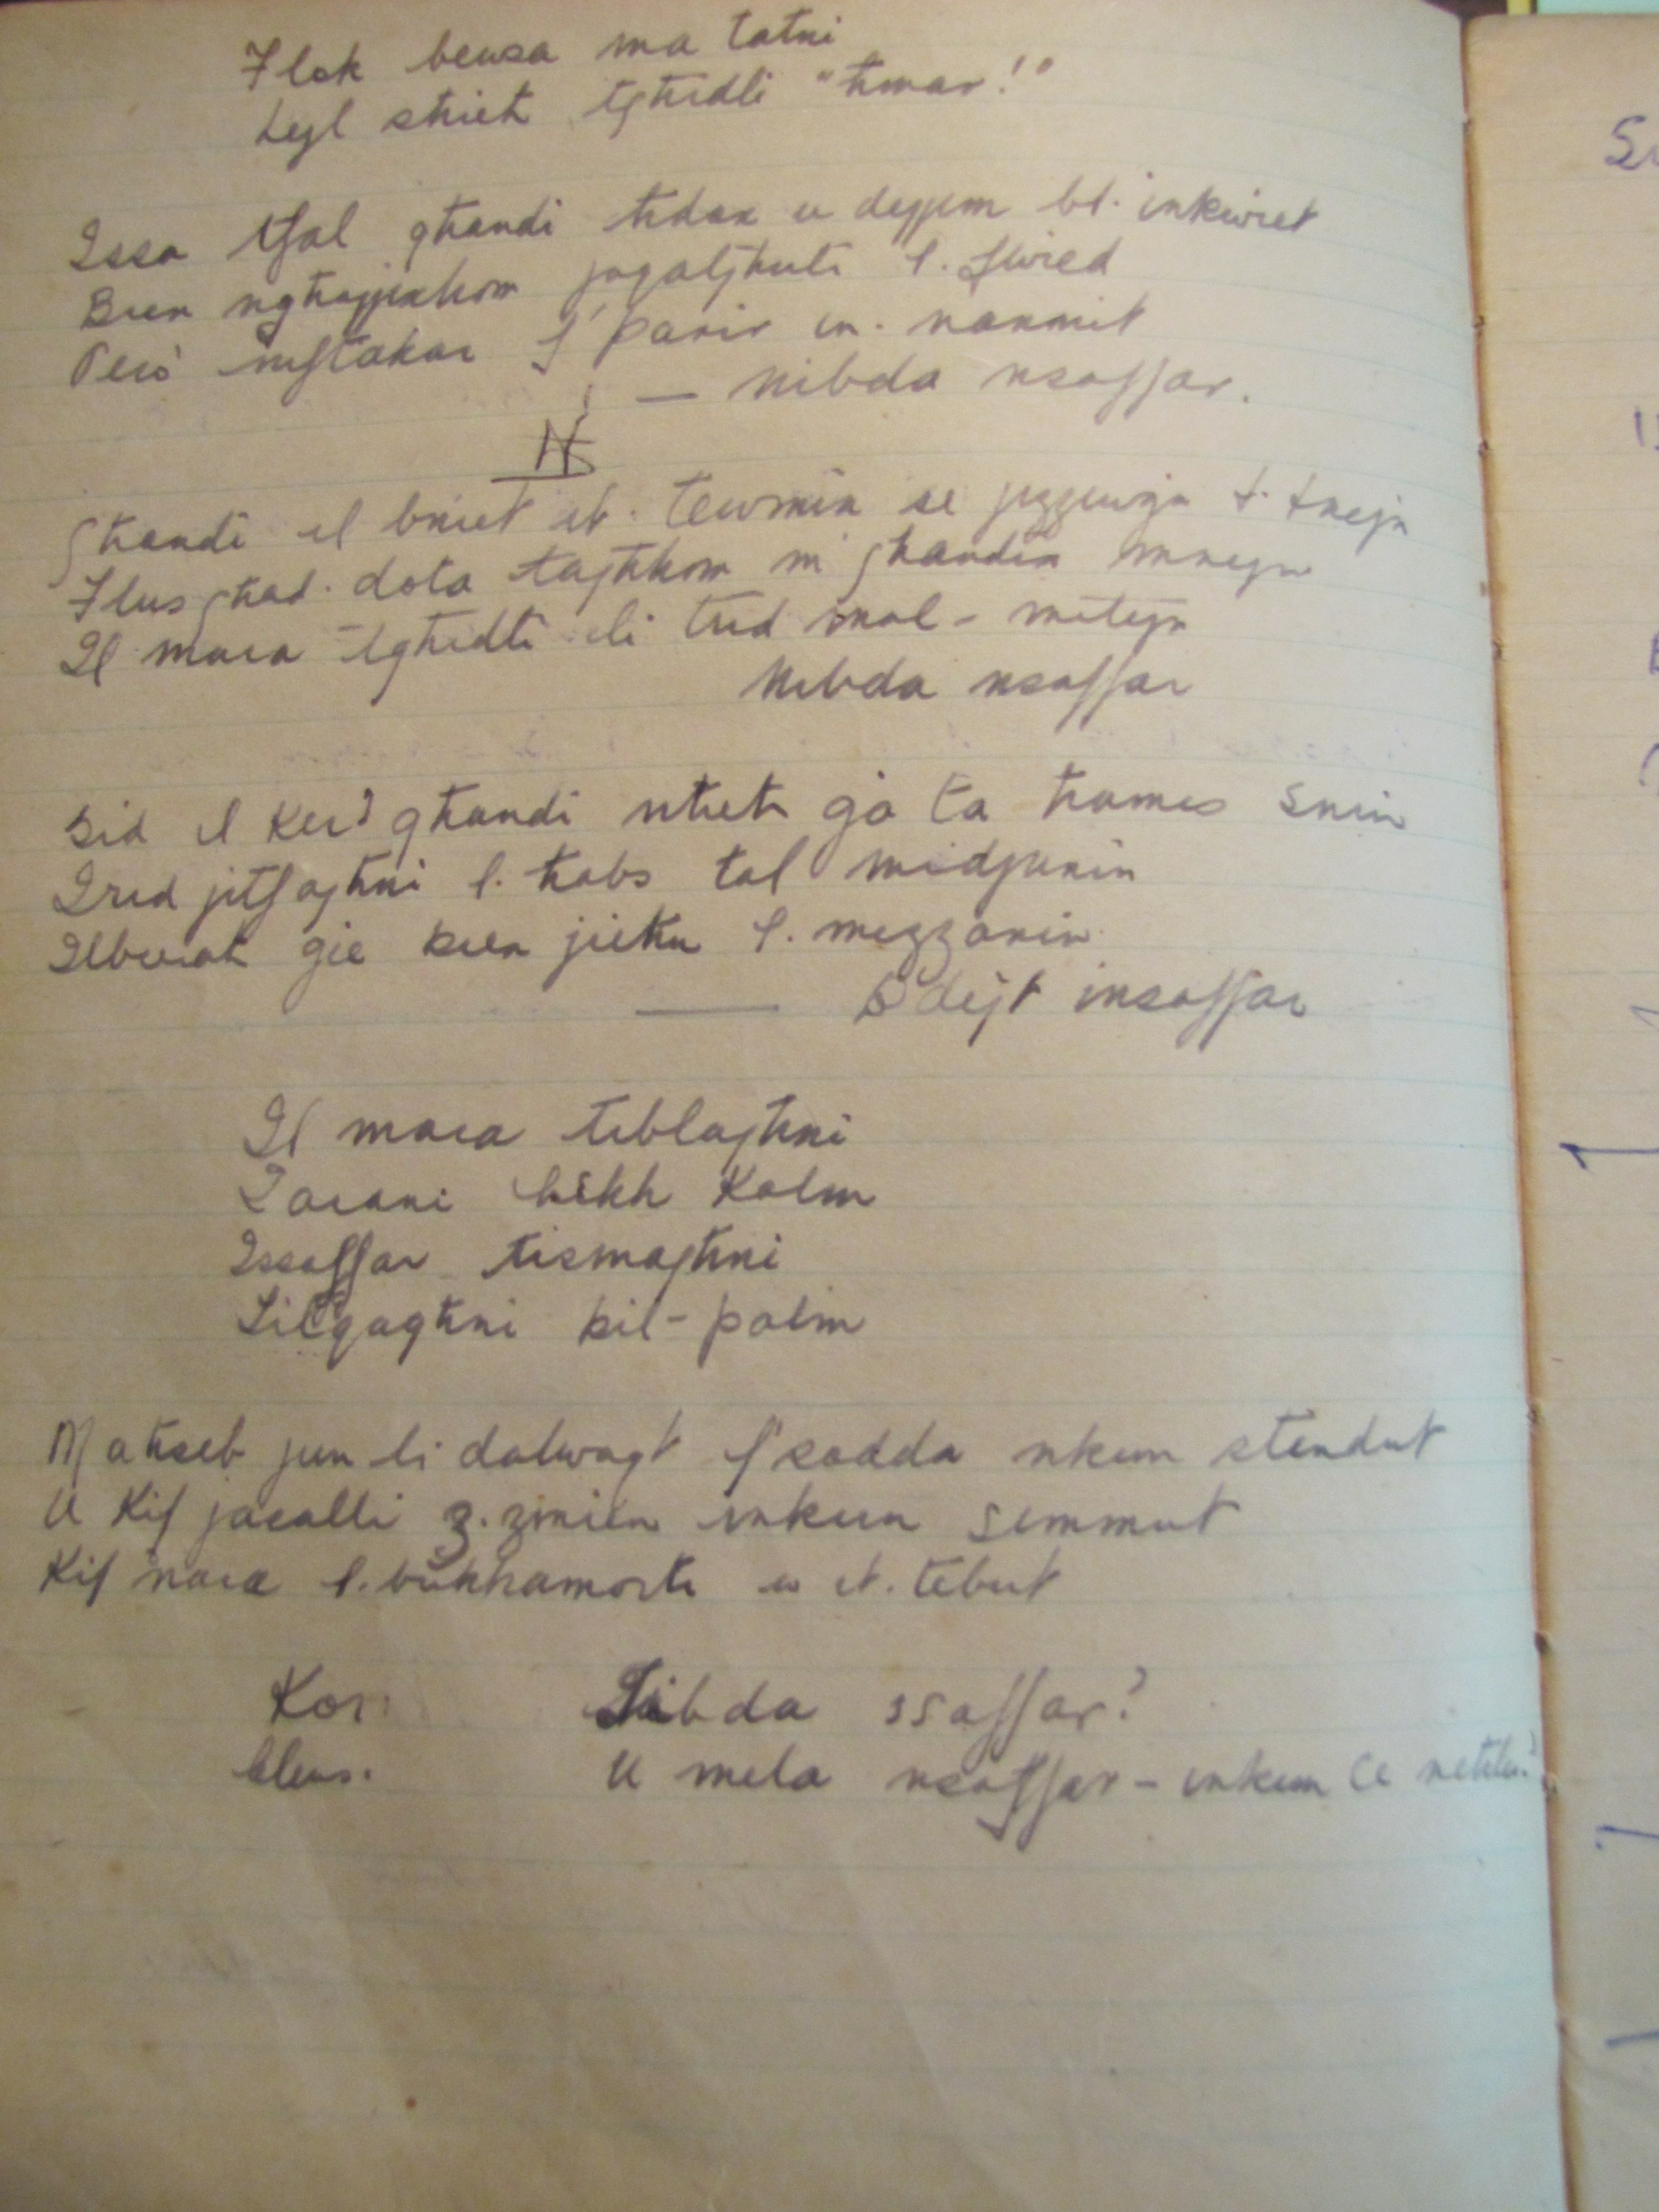 Flok bewsa ma tatni
Leħl xħiet tgħidli "ħmar!"
Issa tfal għandi ħdax u dejjem bl. inkwiet
Biex ngħajjixhom jaqalgħuli l. fwied
Pero niftakar f' parir u. nanniet
— nibda nsaffar.
Għandi il bniet it. tewmin se jiżżewġu t. tnejn
Flus għad. dota tagħhom m'għandix mnejn
Il mara tgħidli li trid mal-mitejn
Nibda nsaffar
Sid il kera għandi ntih ġa ta ħames snin
Irid jitfagħni l. ħabs tal midjunin
Ilbieraħ ġie biex jieħu l. mezzanin
— Bdejt insaffar
Il mara tiblagħni
Tarani hekk kalm
Issaffar tismagħni
Tilqagħni bil-palm
Maħseb jien li dalwaqt f'sodda nkun stendut
U kif jasalli ż. żmien inkun immut
Kif nara l. bukħamorti u it. tebut
Kor: Tibda ssaffar?
Clews. U mela nsaffar – inkun